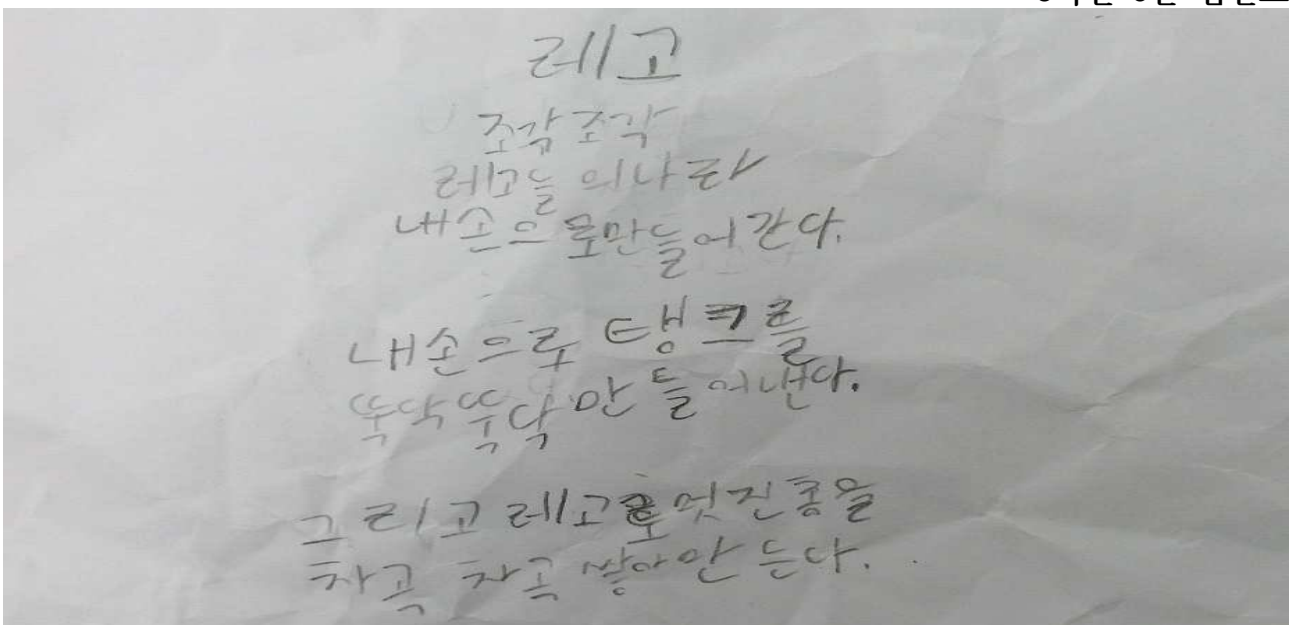 레고
조각조각
레고들의나라
내손으로만들어간다.
내손으로 탱크를
뚝딱뚝딱만들어낸다.
그리고레고로멋진총을
차곡차곡쌓아만든다.